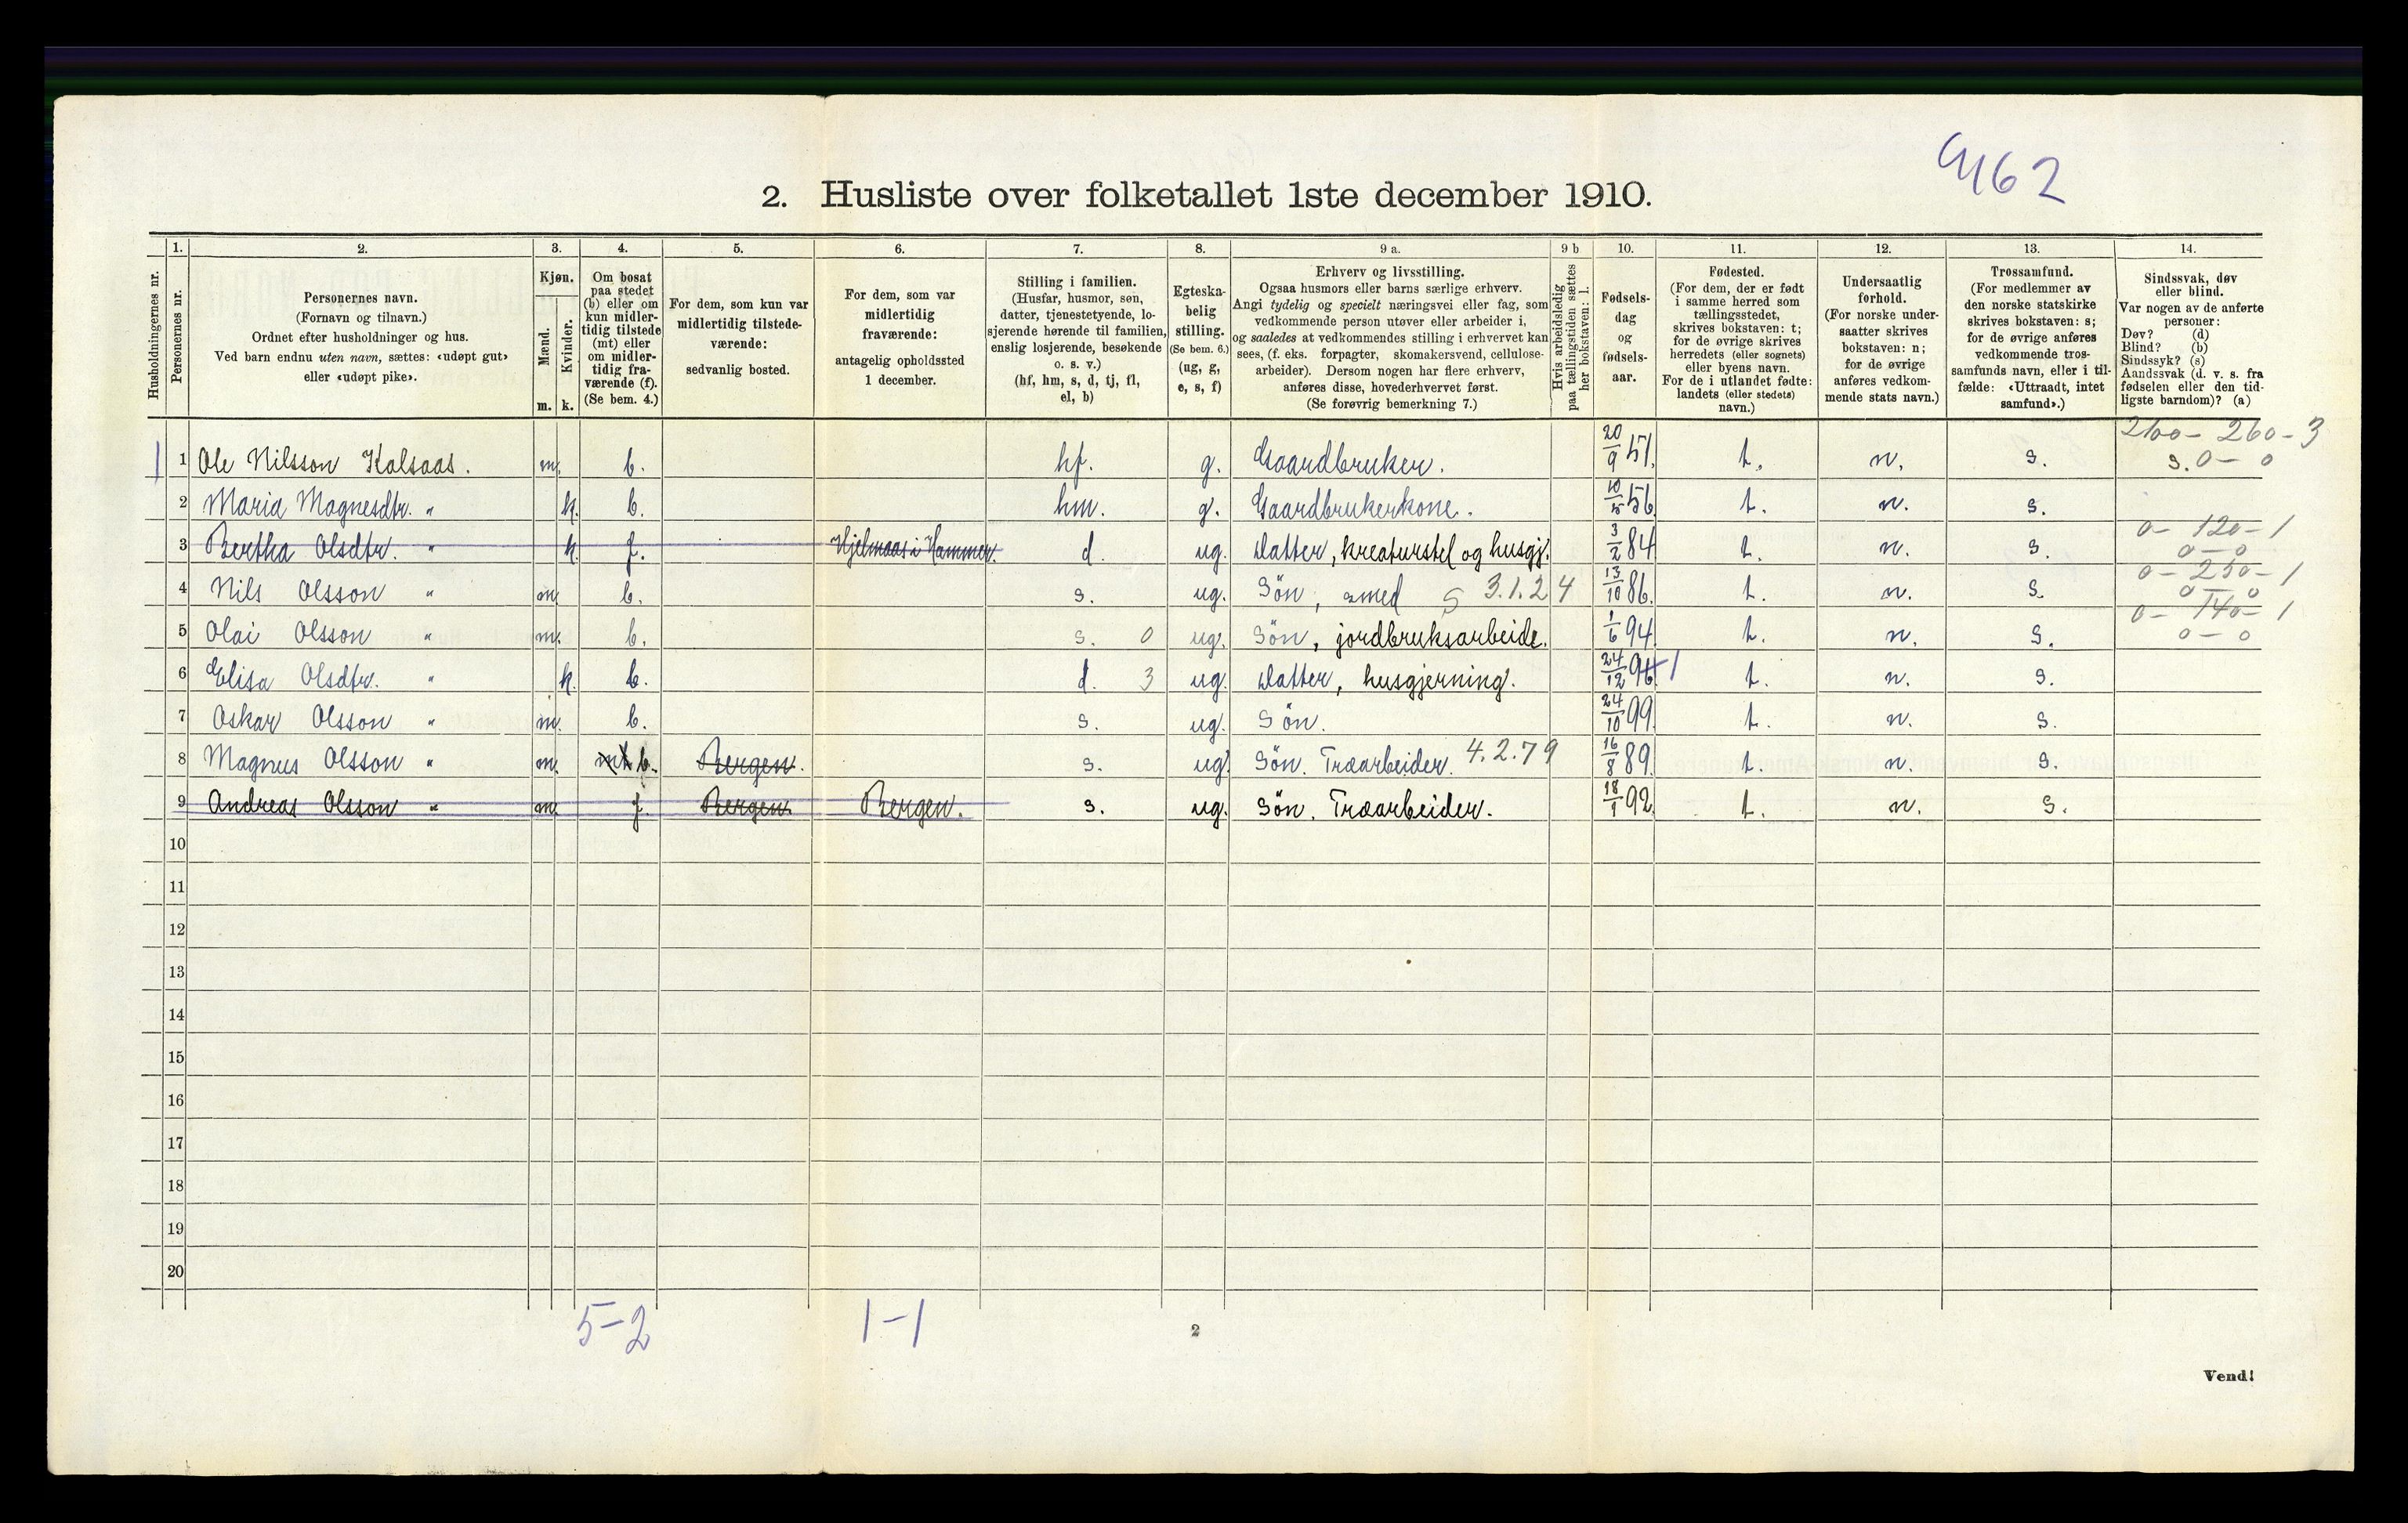 9162
2. Husliste over folketallet 1ste december 1910.
Husholdningernes nr.
1.
Personernes nr.
2.
Personernes navn.
(Fornavn og tilnavn.)
Ordnet efter husholdninger og hus.
Ved barn endnu uten navn, sættes: «udøpt gut»
eller «udøpt pike».
3.
Kjøn.
Mænd.
Kvinder.
m. k.
4.
Om bosat
paa stedet
(b) eller om
kun midler-
tidig tilstede
(mt) eller
om midler-
tidig fra-
værende (f).
(Se bem. 4.)
5.
For dem, som kun var
midlertidig tilstede-
værende:
sedvanlig bosted.
6.
For dem, som var
midlertidig
fraværende:
antagelig opholdssted
1 december.
7.
Stilling i familien.
(Husfar, husmor, søn,
datter, tjenestetyende, lo-
sjerende hørende til familien,
enslig losjerende, besøkende
o. s. v.)
(hf, hm, s, d, tj, fl,
el, b)
8.
Egteska-
belig
stilling.
(Se bem. 6.)
(ug, g,
e, s, f)
9 a.
Erhverv og livsstilling.
Ogsaa husmors eller barns særlige erhverv.
Angi tydelig og specielt næringsvei eller fag, som
vedkommende person utøver eller arbeider i,
og saaledes at vedkommendes stilling i erhvervet kan
sees, (f. eks. forpagter, skomakersvend, cellulose-
arbeider). Dersom nogen har flere erhverv,
anføres disse, hovederhvervet først.
(Se forøvrig bemerkning 7.)
9 b
Hvis arbeidsledig
paa tællingstiden sættes
her bokstaven: l.
10.
Fødsels-
dag
og
fødsels-
aar.
11.
Fødested.
(For dem, der er født
i samme herred som
tællingsstedet,
skrives bokstaven: t;
for de øvrige skrives
herredets (eller sognets)
eller byens navn.
For de i utlandet fødte:
landets (eller stedets)
navn.)
12.
Undersaatlig
forhold.
(For norske under-
saatter skrives
bokstaven: n;
for de øvrige
anføres vedkom-
mende stats navn.)
13.
Trossamfund.
(For medlemmer av
den norske statskirke
skrives bokstaven: s;
for de øvrige anføres
vedkommende tros-
samfunds navn, eller i til-
fælde: «Uttraadt, intet
samfund».)
14.
Sindssvak, døv
eller blind.
Var nogen av de anførte
personer:
Døv? (d)
Blind? (b)
Sindssyk? (s)
Aandssvak (d. v. s. fra
fødselen eller den tid-
ligste barndom)? (a)
1 1 Ole Nilsson Kalsaas. m. b. hf. g. Gaardbruker. 20/9 51. t. n. s. 2100 - 260 - 3
s. 0 - 0
2 Maria Magnesdtr. " k. b. hm. g. Gaardbrukerkone. 10/5 56 t. n. s.
3 Bertha Olsdtr. " k. f. Hjelmaas i Hammer. d. ug. datter, kreaturstel og husgj. 3/2 84 t. n. s. 0 - 120 - 1
0 - 0
4 Nils Olsson " m. b. s. ug. Sön, smed S 3.1.24 13/10 86. t. n. s. 0 - 250 - 1
0 - 0
5 Olai Olsson " m. b. s. 0 ug. Sön, jordbruksarbeide. 1/6 94 t. n. s. 0 - 140 - 1
0 - 0
6 Elisa Olsdtr. " k. b. d. 3 ug. datter, husgjerning. 24/12 96 1 t. n. s.
7 Oskar Olsson " m. b. s. ug. Sön. 24/10 99 t. n. s.
8 Magnus Olsson " m. mt b. Bergen. s. ug. Sön. Træarbeider. 4.2.79 16/8 89. t. n. s.
9 Andreas Olsson " m. f. Bergen. Bergen. s. ug. Sön. Træarbeider. 18/1 92. t. n. s.
10
11
12
13
14
15
16
17
18
19
20
5-2 1-1
2
Vend!